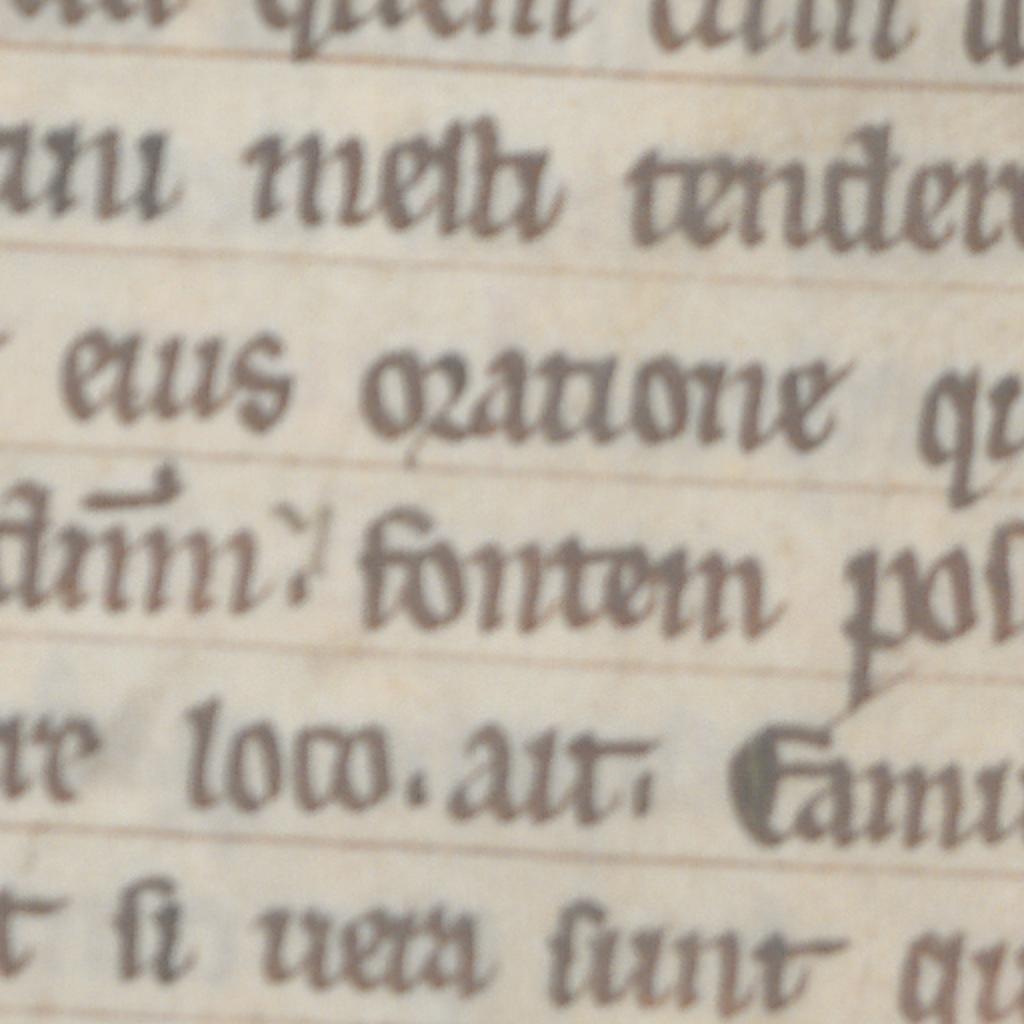 quem cum
mesti tender
eius oratione qu
fontem pos
re loco. ait. Eamu
t si uera sunt qu